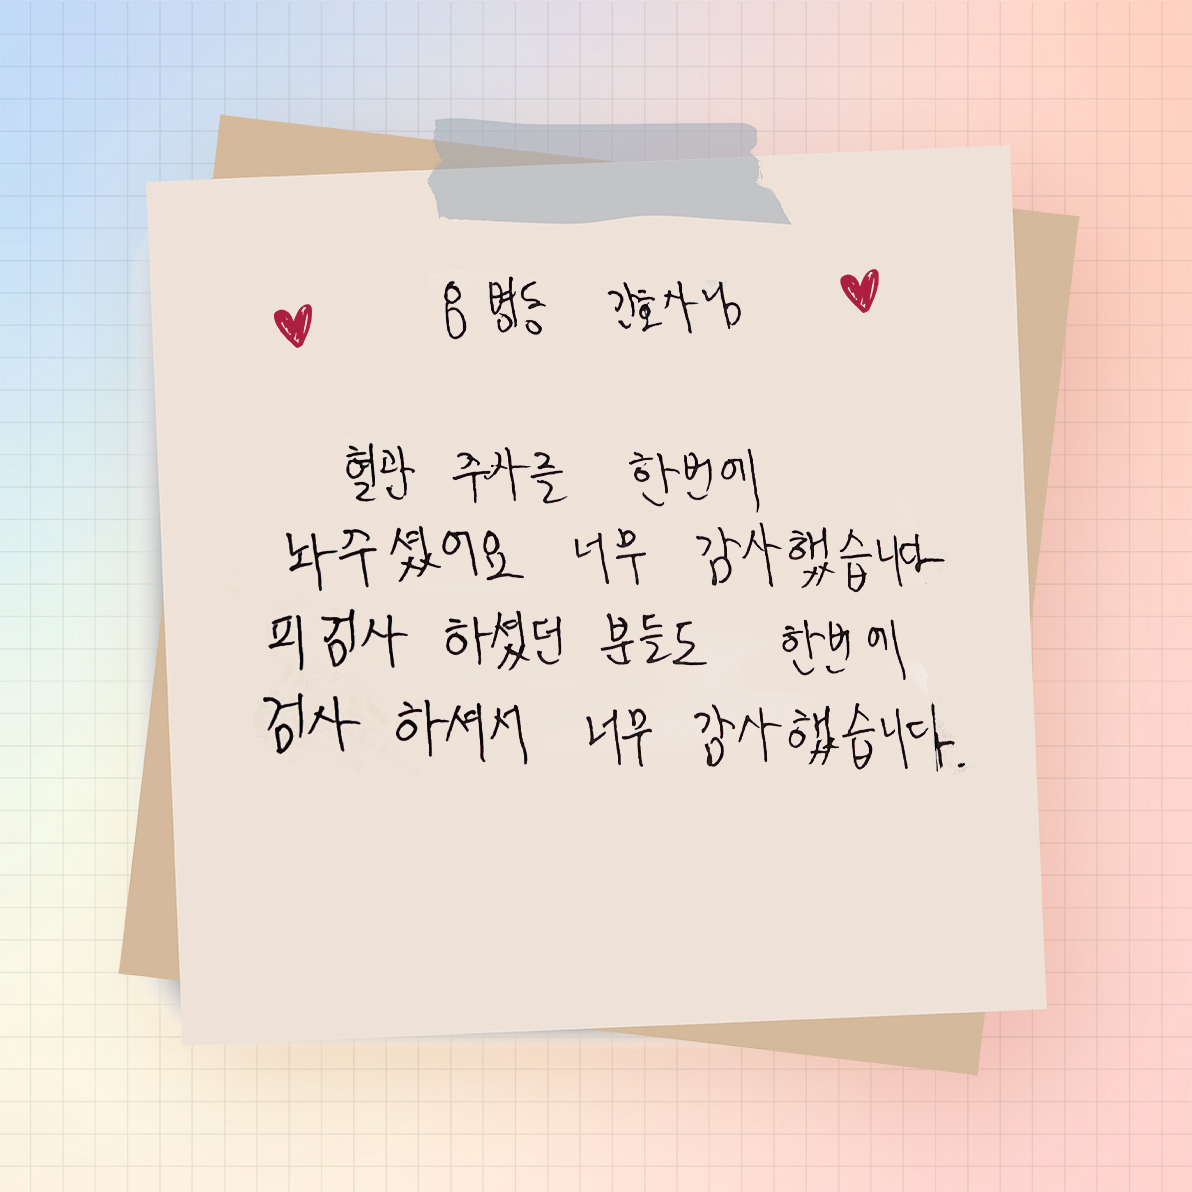 8 병동 간호사님
혈관 주사를 한번에
놔주셨어요 너무 감사했습니다
피검사 하셨던 분들도 한번에
검사 하셔서 너무 감사했습니다.